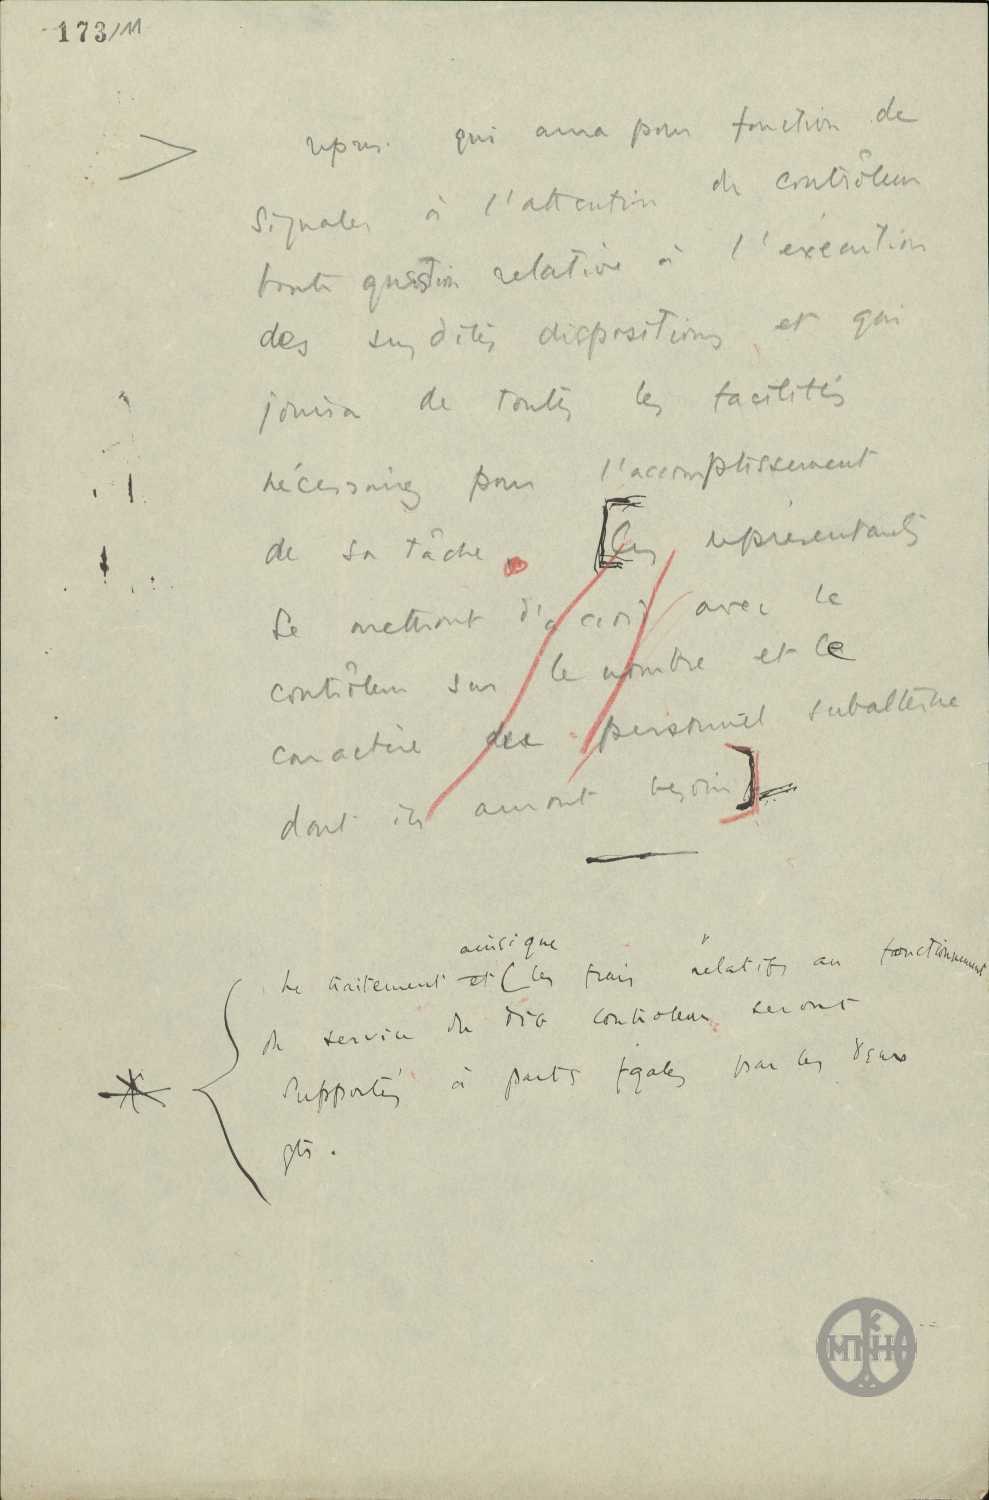 173/11
repres. qui aura pour fonction de
signaler à l'attention du contrôleur
toute question relative à l'exécution
des susdites dispositions et qui
jouira de toutes les facilités
nécessaires pour l'accomplissement
de sa tâche. [Les représentants
se mettront d'accord avec le
contrôleur sur le nombre et le
caractère de personnel subalterne
dont ils auront besoin]
ainsi que
Le traitement et les frais relatifs au fonctionnement
du service du dit contrôleur seront
supportés à parts égales par les deux
gts.
ΜΠΗΚ